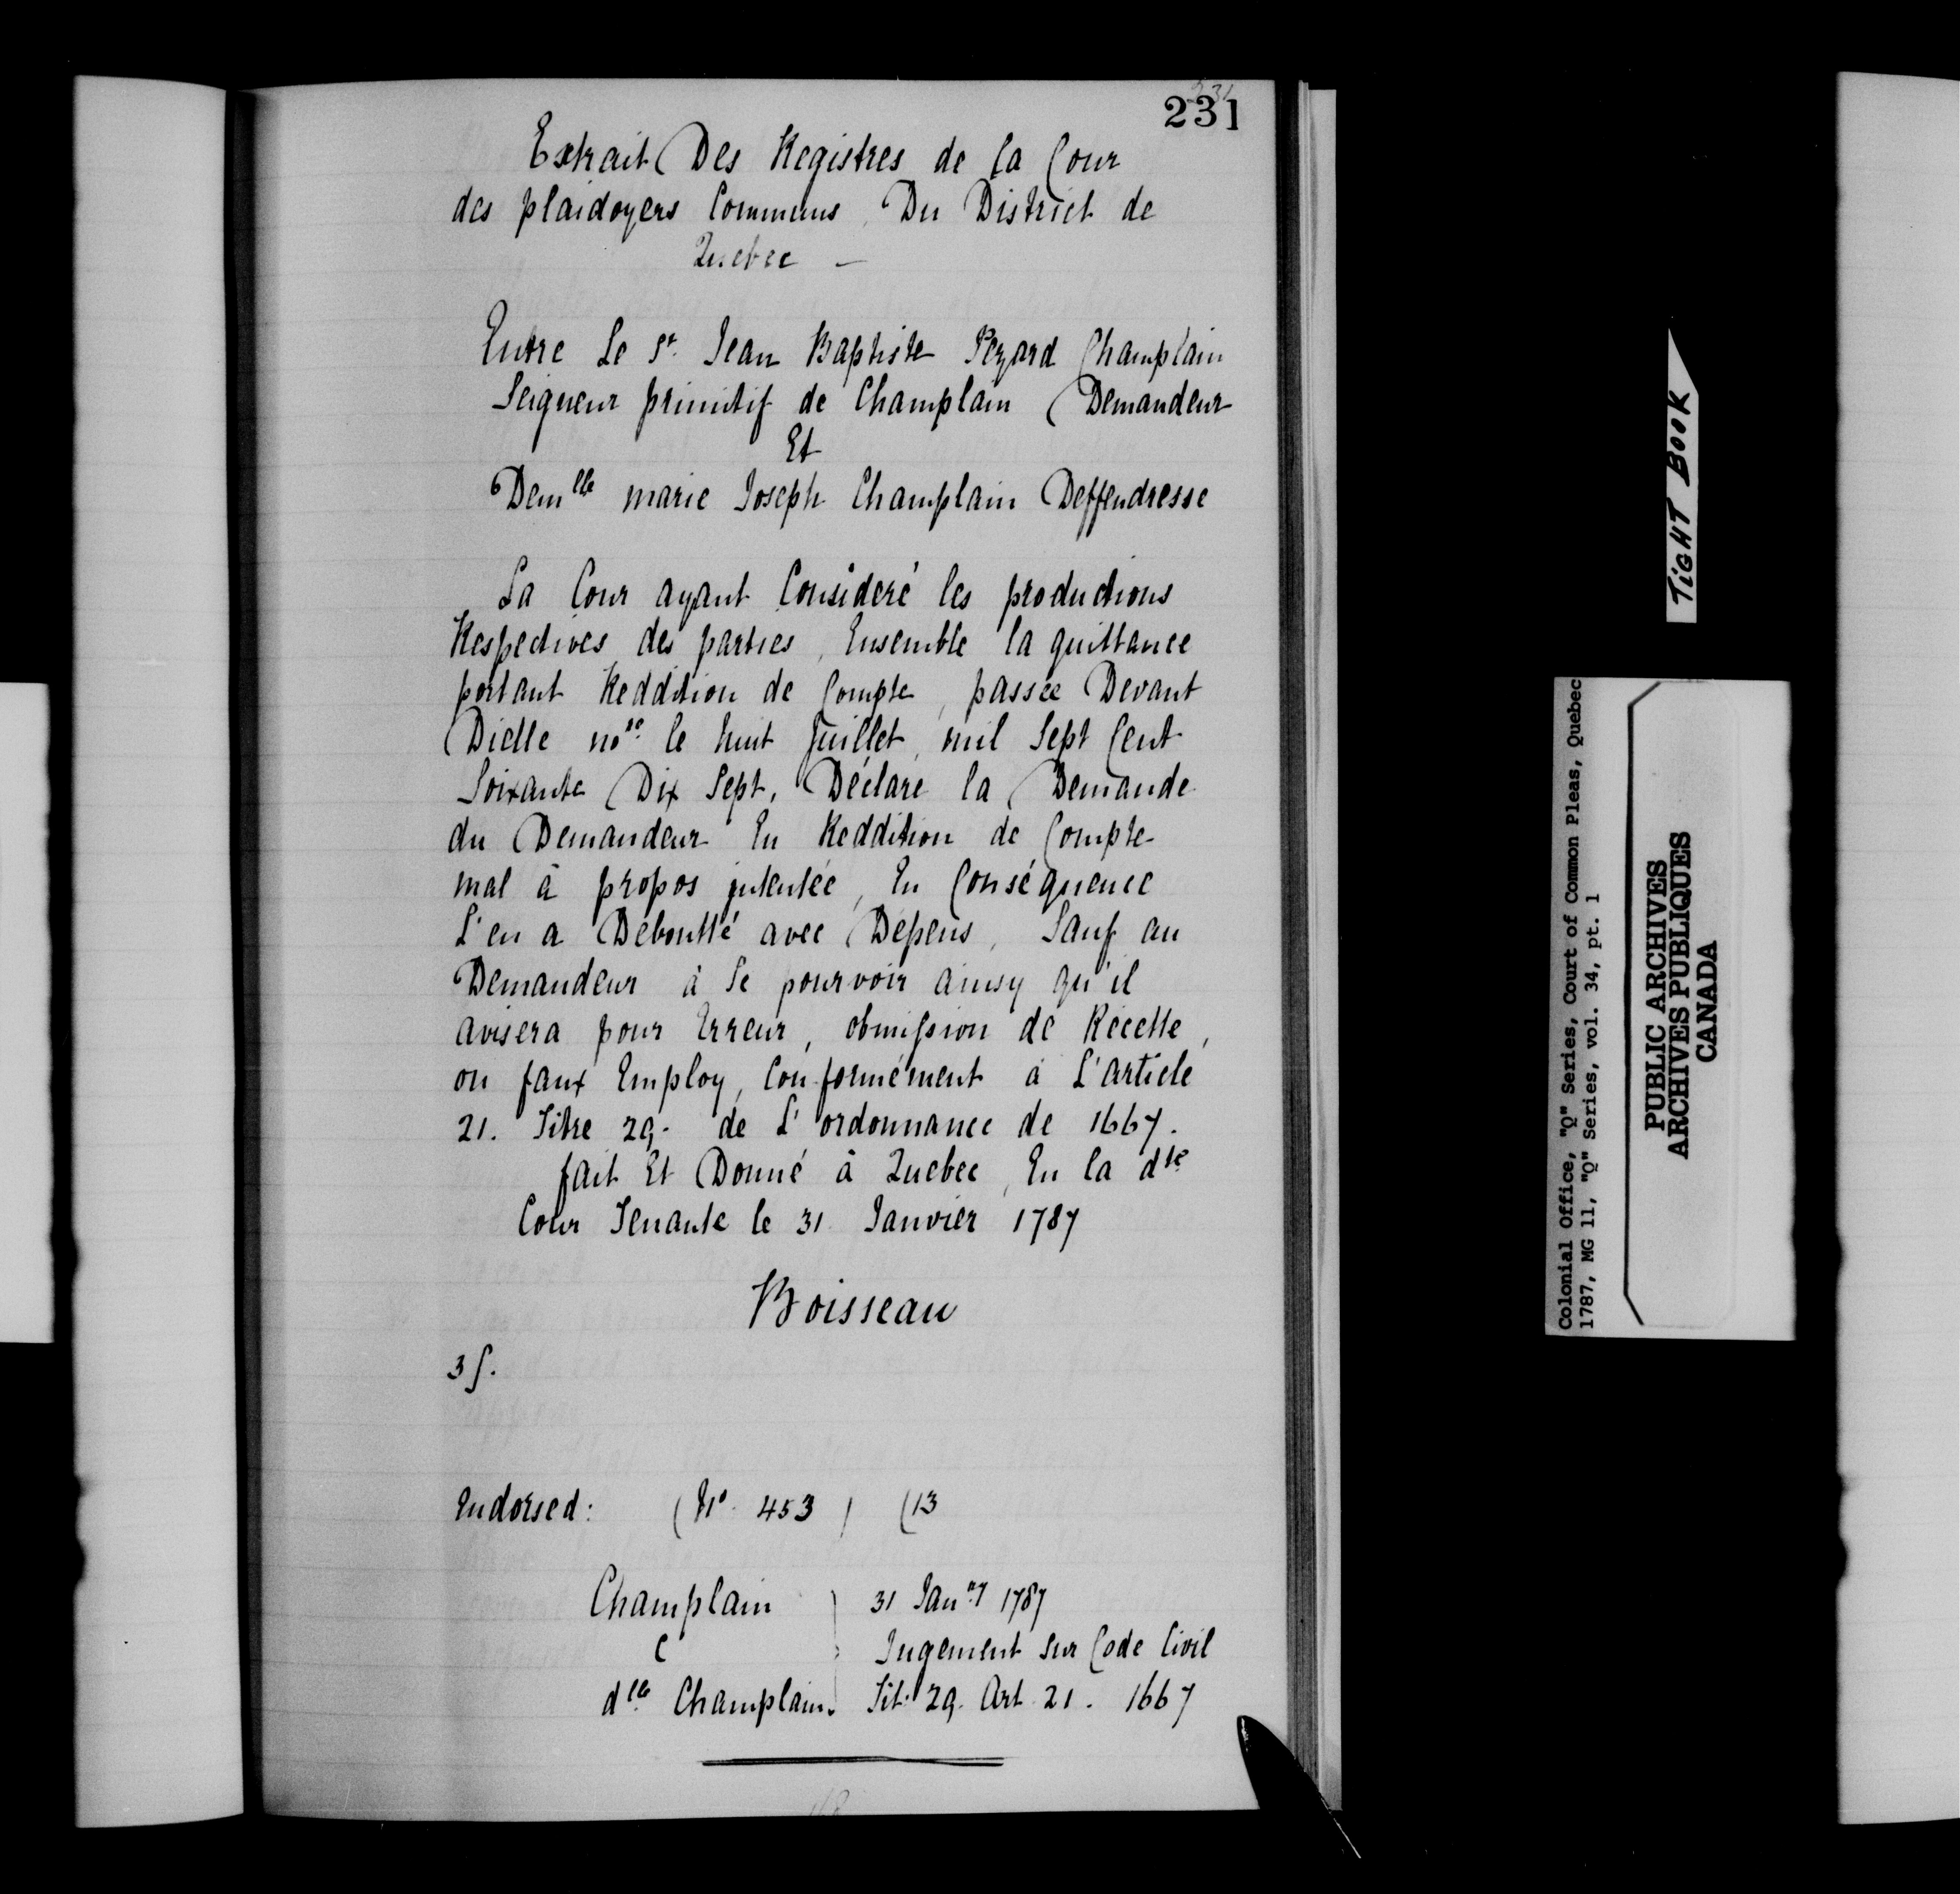 231
231
Extrait Des Registres de la Cour
des plaidoyers Communs, Du District de
Quebec —
Entre Le Sr. Jean Baptiste Pezard Champlain
Seigneur primitif de Champlain Demandeur
Et
Demlle marie Joseph Champlain Deffendresse
La Cour ayant Consideré les productions
Respectives des parties, Ensemble la quittance
portant Reddition de Compte, passée Devant
Dielle nore le huit Juillet, mil Sept Cent
Soixante Dix Sept, Déclare la Demande
du Demandeur En Reddition de Compte
mal à propos intentée, En Conséquence
L'en a Déboutté avec Depens, Sauf au
Demandeur à Se pourvoir ainsy qu'il
avisera pour Erreur, obmission de Récette,
ou faux Employ, Conformément à L'article
21. Titre 29. de L'ordonnance de 1667.
fait Et Donné à Quebec, En la dte
Cour Tenante le 31 Janvier 1787
Boisseau
3 s.
Endorsed: (No. 453) (13
Champlain } 31 Janry 1787
C } Jugement sur Code Civil
dlle Champlain } Tit. 29. Art. 21. 1667
TIGHT BOOK
Colonial Office, "Q" Series, Court of Common Pleas, Quebec
1787, MG 11, "Q" Series, vol. 34, pt. 1
PUBLIC ARCHIVES
ARCHIVES PUBLIQUES
CANADA